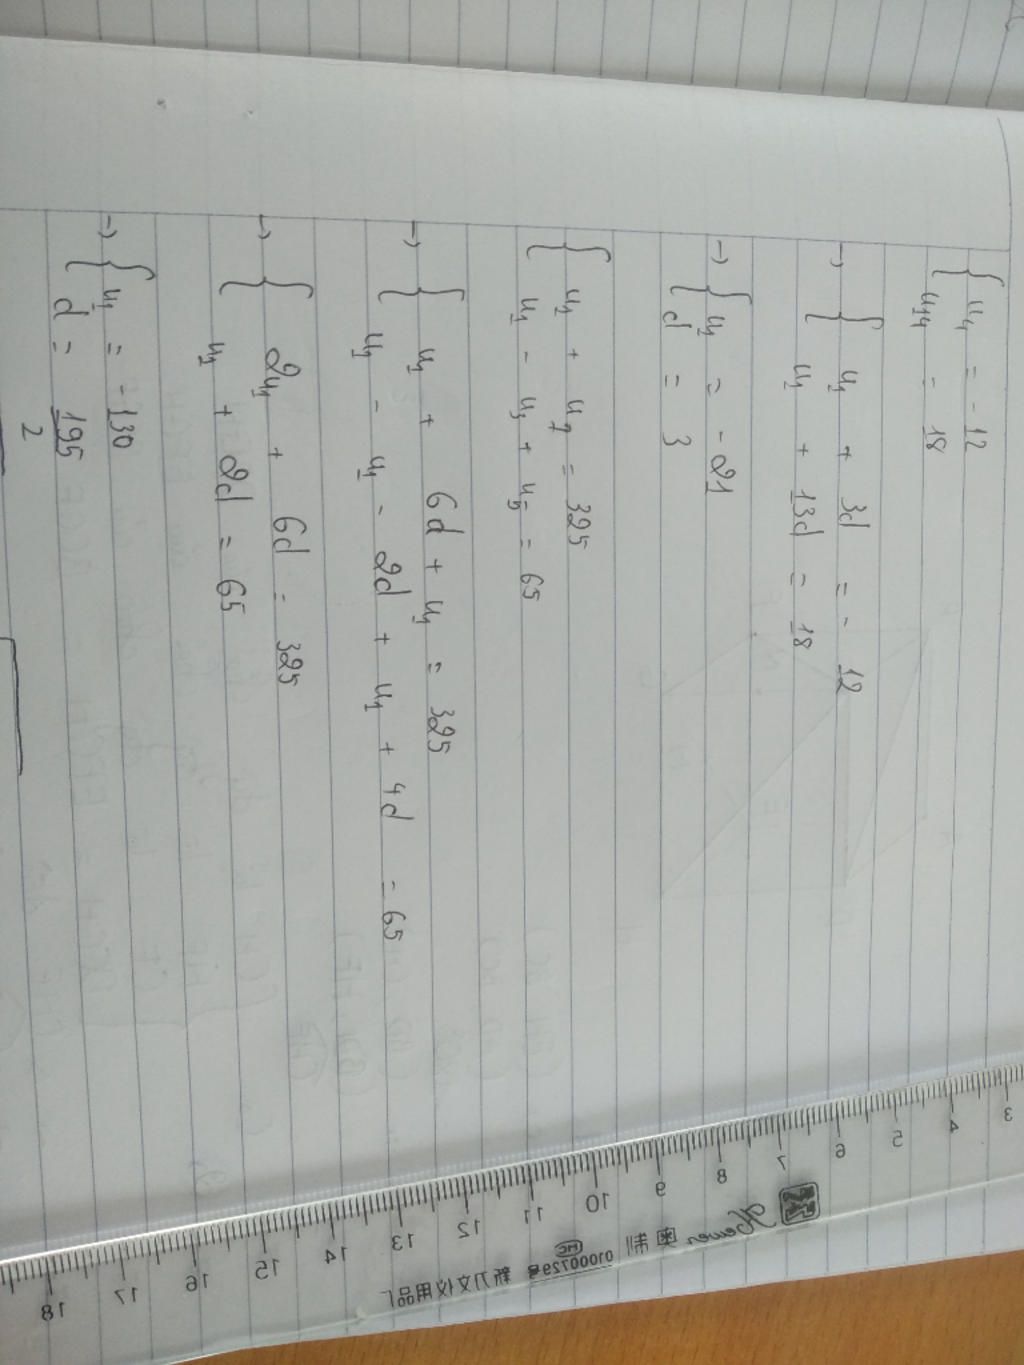 { u₄ = -12
{ u₁₄ = 18
→ { u₁ + 3d = - 12
{ u₁ + 13d = 18
→ { u₁ = -21
{ d = 3
{ u₁ + u₇ = 325
{ u₁ - u₃ + u₅ = 65
→ { u₁ + 6d + u₁ = 325
{ u₁ - u₁ - 2d + u₁ + 4d = 65
→ { 2u₁ + 6d = 325
{ u₁ + 2d = 65
→ { u₁ = -130
{ d = 195
2
3 4 5 6 7 8 9 10 11 12 13 14 15 16 17 18
MC
01000729号